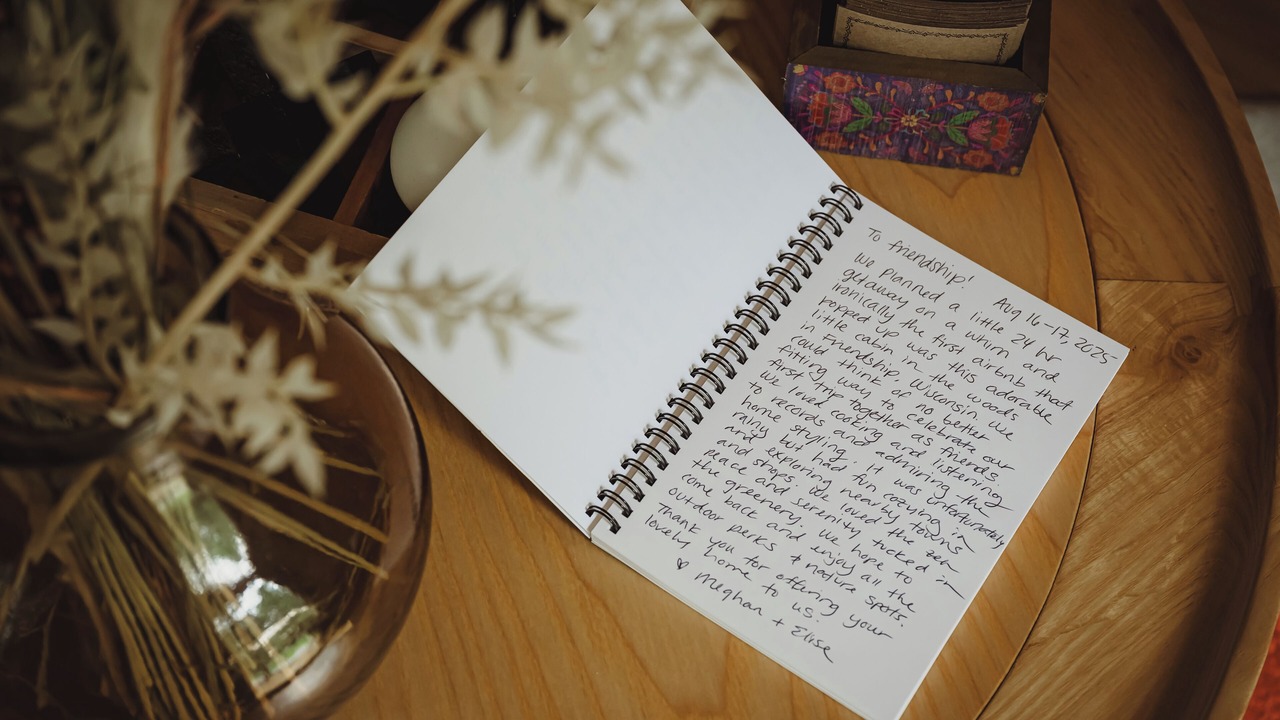 To friendship! Aug 16-17, 2025
We planned a little 24 hr
getaway on a whim and
ironically the first airbnb that
popped up was this adorable
little cabin in the woods
in Friendship, Wisconsin. We
could think of no better
fitting way to celebrate our
first trip together as friends.
We loved cooking and listening
to records and admiring the
home styling. It was unfortunately
rainy but had fun cozying in
and exploring nearby towns
and shops. We loved the zen
peace and serenity tucked in
the greenery. We hope to
come back and enjoy all the
outdoor perks + nature spots.
Thank you for offering your
lovely home to us.
♡ Meghan + Elise